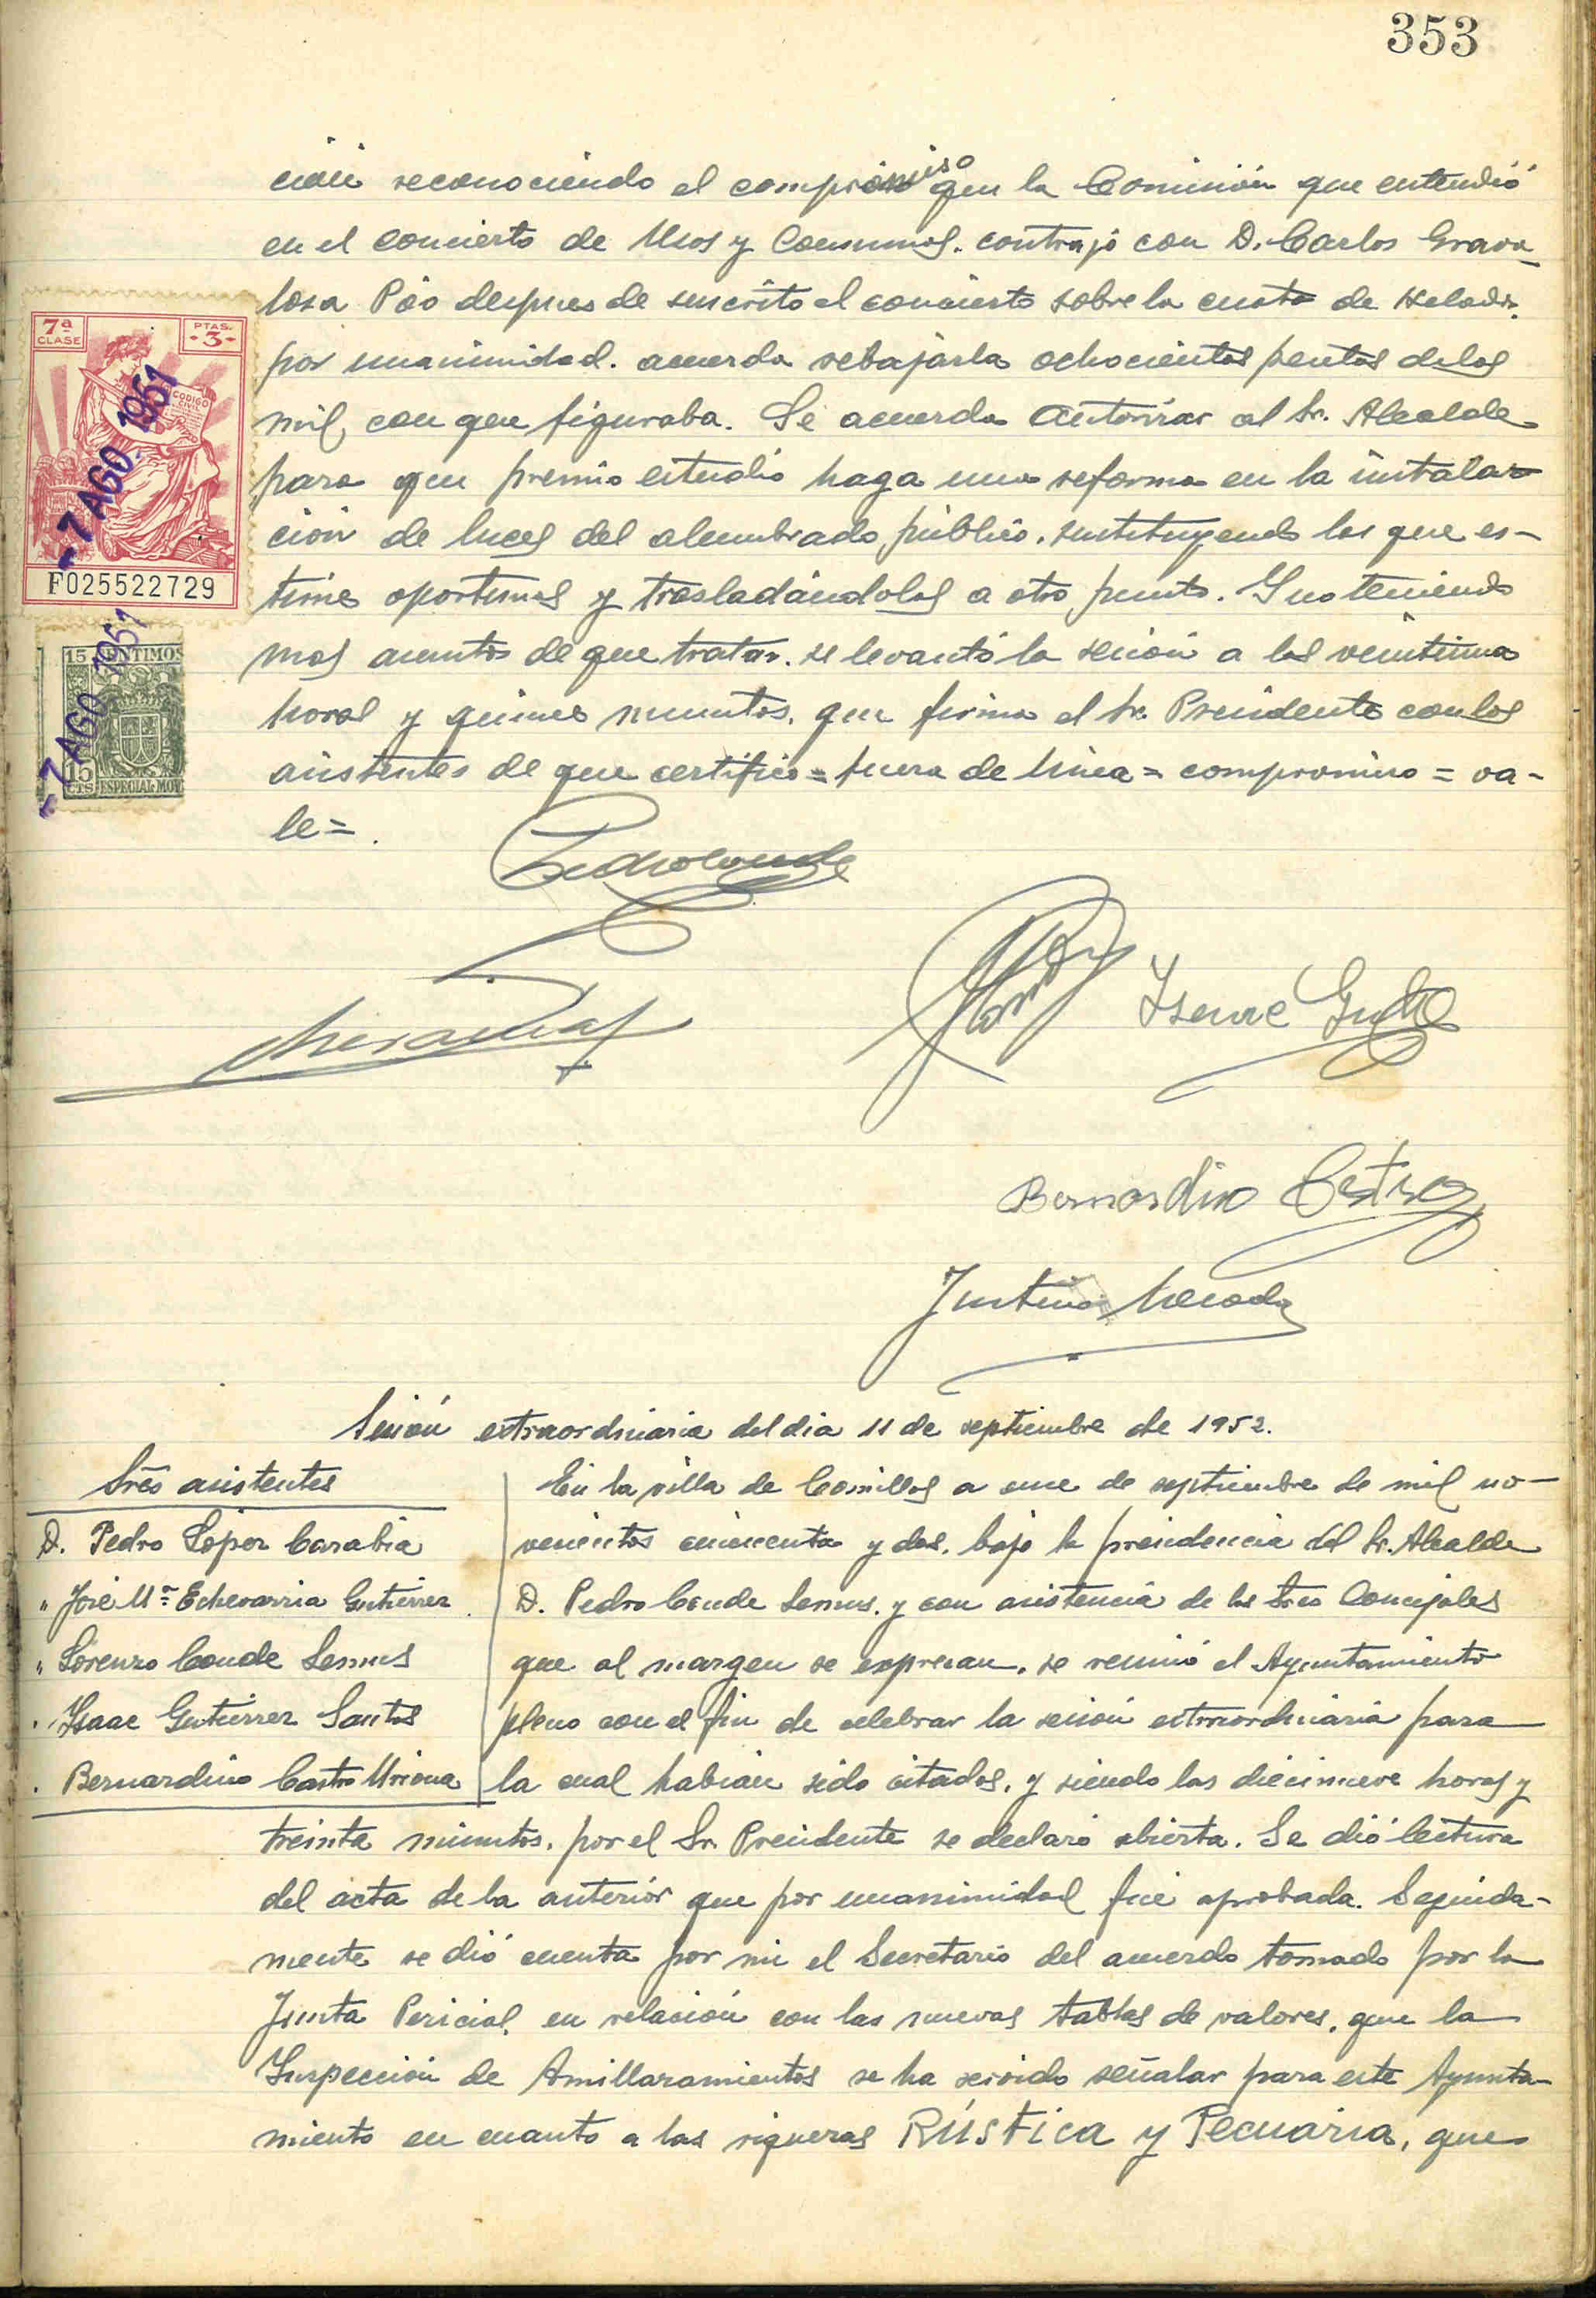 353
ción reconociendo el compromiso que la Comisión que entendió
en el concierto de Usos y Consumos. contrajo con D. Carlos Grava-
losa Pío despues de suscrito el concierto sobre la cuota de Helados.
por unanimidad. acuerda rebajarla ochocientas pesetas de las
mil, con que figuraba. Se acuerda autorizar al Sr. Alcalde
para que premio estudio haga una reforma en la instala-
ción de luces del alumbrado público. sustituyendo las que es-
time oportunas y trasladándolas a otro punto. Y no teniendo
mas asuntos de que tratar. se levantó la sesión a las veintiuna
horas y quince minutos. que firma el Sr. Presidente con los
asistentes de que certifico = fuera de linea = compromiso = va-
le =.
7ª CLASE
PTAS. -3-
CODIGO CIVIL
-7 AGO. 1951
F025522729
15 CENTIMOS
-7 AGO. 1951
15 CTS ESPECIAL MOV
Pedro Conde
Isaac Gutz
Bernardino Castro
Sesión extraordinaria del dia 11 de septiembre de 1952.
Sres asistentes
D. Pedro López Carabia
" José Mª Echevarria Gutiérrez
" Lorenzo Conde Lemus
" Isaac Gutiérrez Santos
. Bernardino Castro Uriona
En la villa de Comillas a once de septiembre de mil no-
vecientos cincuenta y dos. bajo la presidencia del Sr. Alcalde
D. Pedro Conde Lemus. y con asistencia de los Sres Concejales
que al margen se expresan. se reunió el Ayuntamiento
pleno con el fin de celebrar la sesión extraordinaria para
la cual habian sido citados. y siendo las diecinueve horas y
treinta minutos. por el Sr. Presidente se declaró abierta. Se dió lectura
del acta de la anterior que por unanimidad fué aprobada. Seguida-
mente se dió cuenta por mi el Secretario del acuerdo tomado por la
Junta Pericial. en relación con las nuevas tablas de valores. que la
Inspección de Amillaramientos se ha servido señalar para este Ayunta-
miento en cuanto a las riquezas RÚSTICA y Pecuaria, que